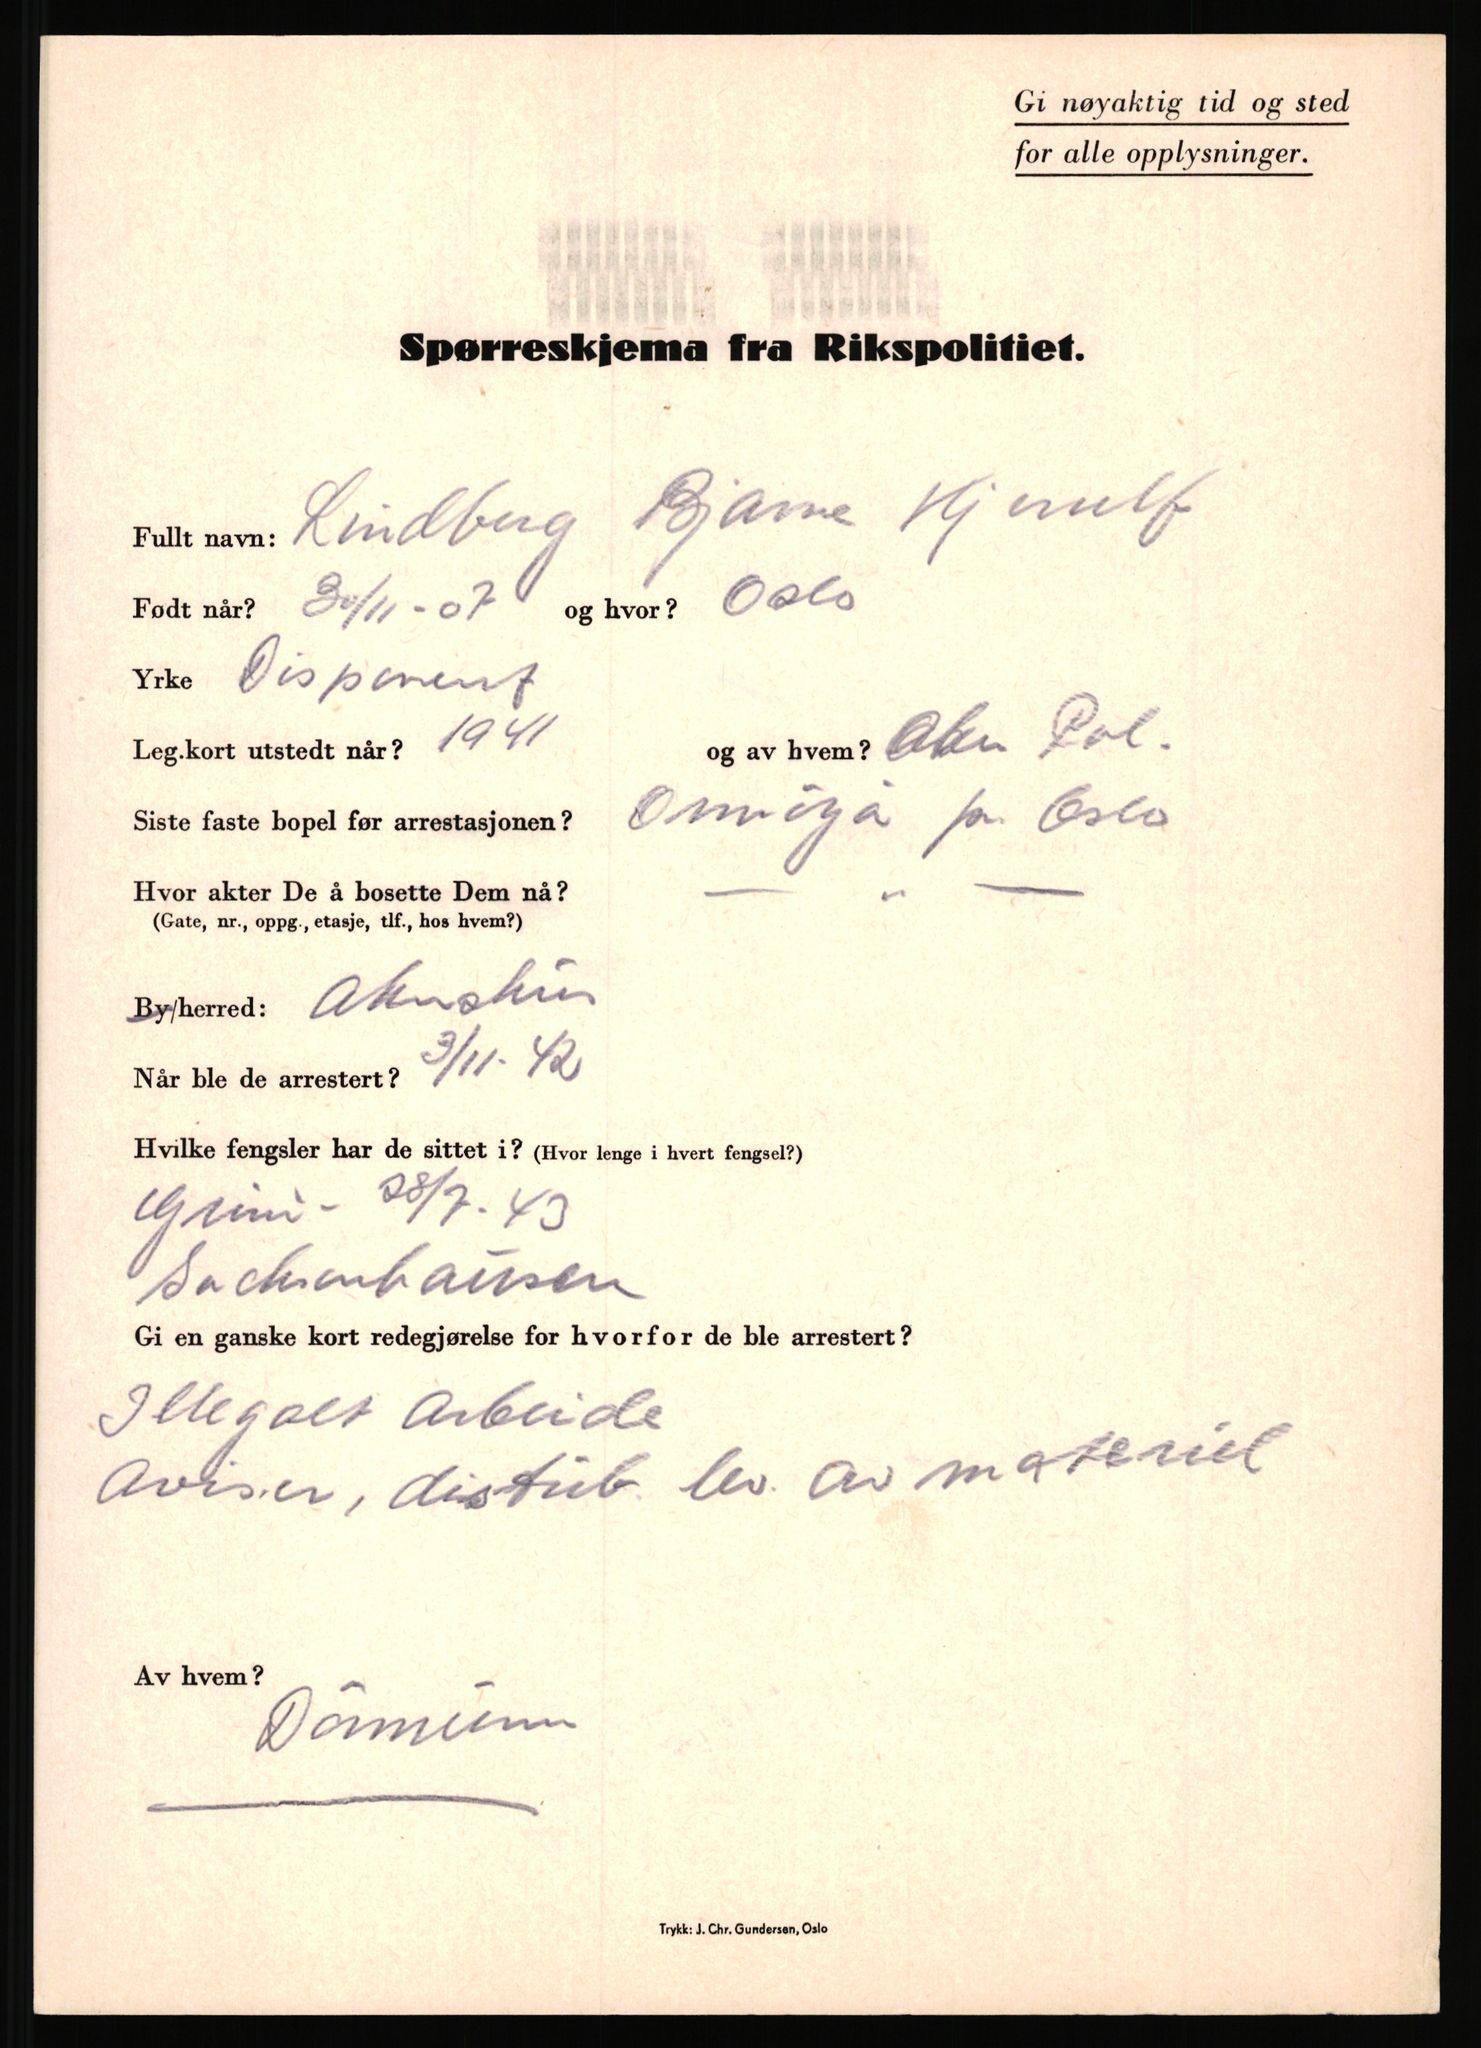 Gi nøyaktig tid og sted
for alle opplysninger.
Spørreskjema fra Rikspolitiet.
Fullt navn: Lindberg Bjarne Hjerulf
Født når? 30/11-07 og hvor? Oslo
Yrke Disponent
Leg.kort utstedt når? 1941 og av hvem? Aker Pol.
Siste faste bopel før arrestasjonen? Ormöya pr. Oslo
Hvor akter De å bosette Dem nå? — " —
(Gate, nr., oppg., etasje, tlf., hos hvem?)
By/herred: Akershus
Når ble de arrestert? 3/11-42
Hvilke fengsler har de sittet i? (Hvor lenge i hvert fengsel?)
Grini - 28/7-43
Sachsenhausen
Gi en ganske kort redegjørelse for hvorfor de ble arrestert?
Illegalt arbeide
Aviser, distrib. lev. av materiel
Av hvem?
Trykk: J. Chr. Gundersen, Oslo